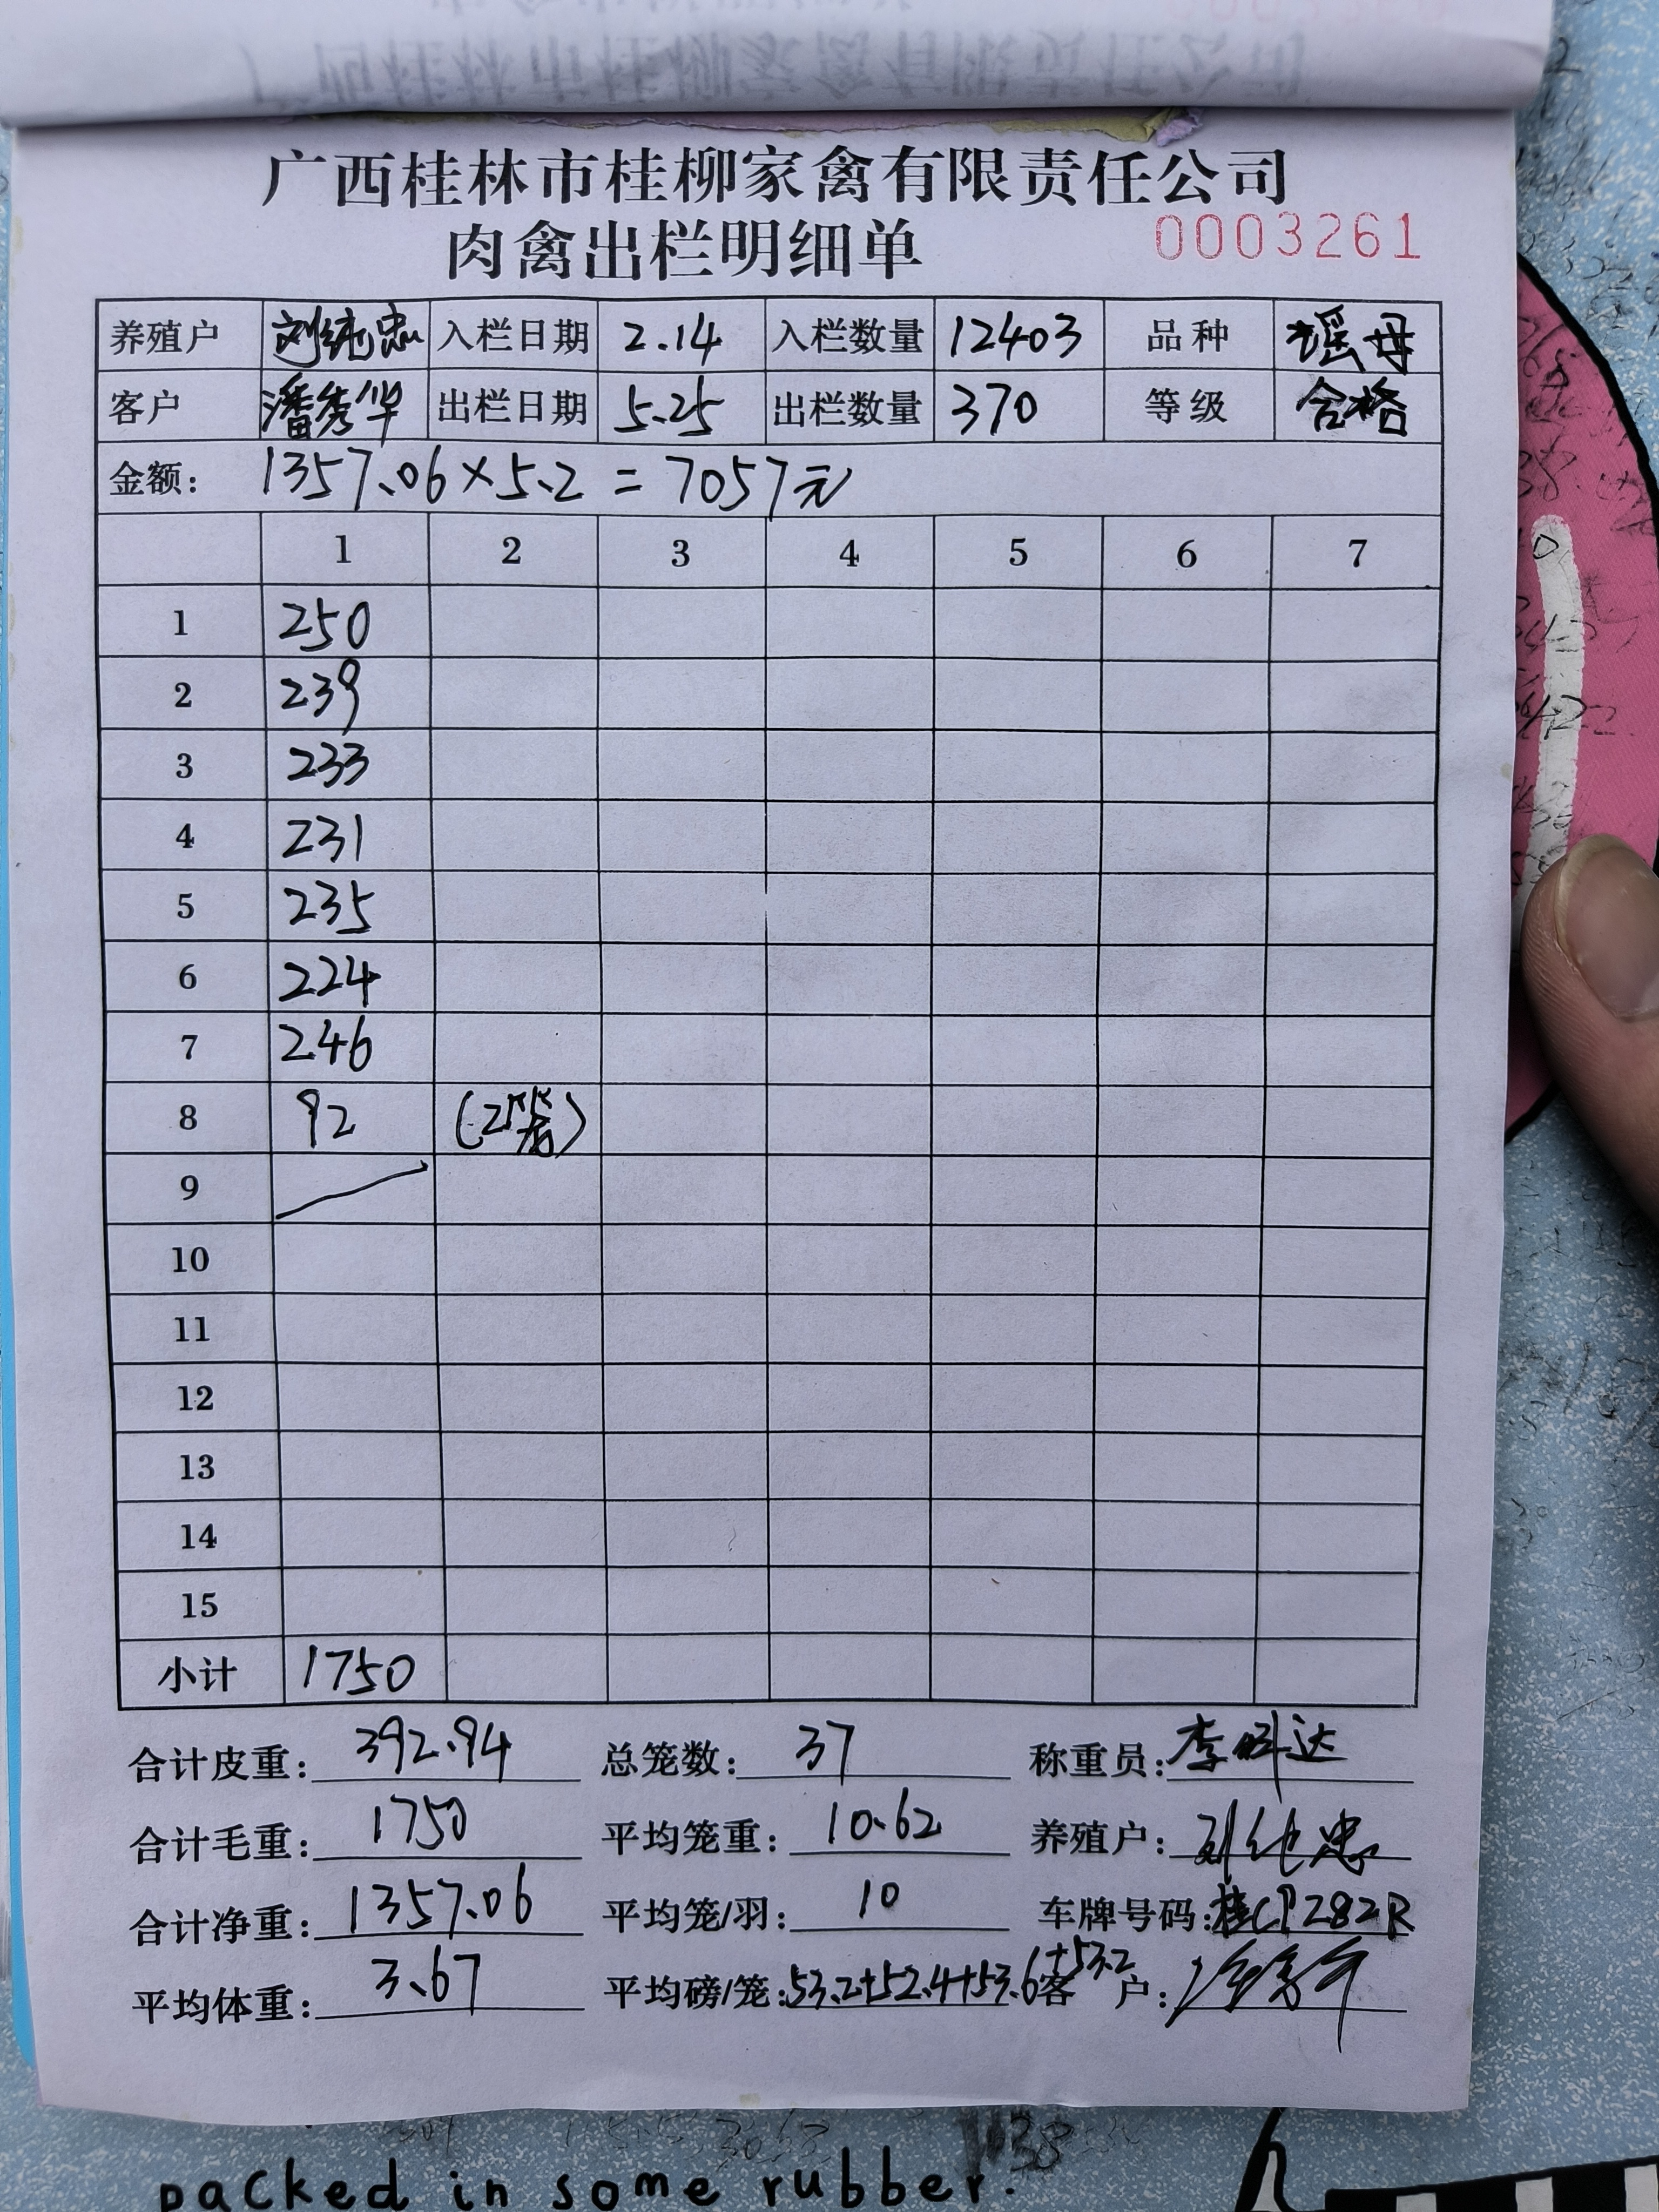 广西桂林市桂柳家禽有限责任公司
肉禽出栏明细单 0003261
养殖户 刘纯忠 入栏日期 2.14 入栏数量 12403 品种 瑶母
客户 潘秀华 出栏日期 5.25 出栏数量 370 等级 合格
金额： 1357.06×5.2=7057元
1 2 3 4 5 6 7
1 250
2 239
3 233
4 231
5 235
6 224
7 246
8 92 (2 )
9
10
11
12
13
14
15
小计 1750
合计皮重： 392.94 总笼数： 37 称重员： 李 达
合计毛重： 1750 平均笼重： 10.62 养殖户： 刘纯忠
合计净重： 1357.06 平均笼/羽： 10 车牌号码： 桂CP282R
平均体重： 3.67 平均磅/笼： 53.2+52.4+53.6+53.2 客户：
packed in some rubber.